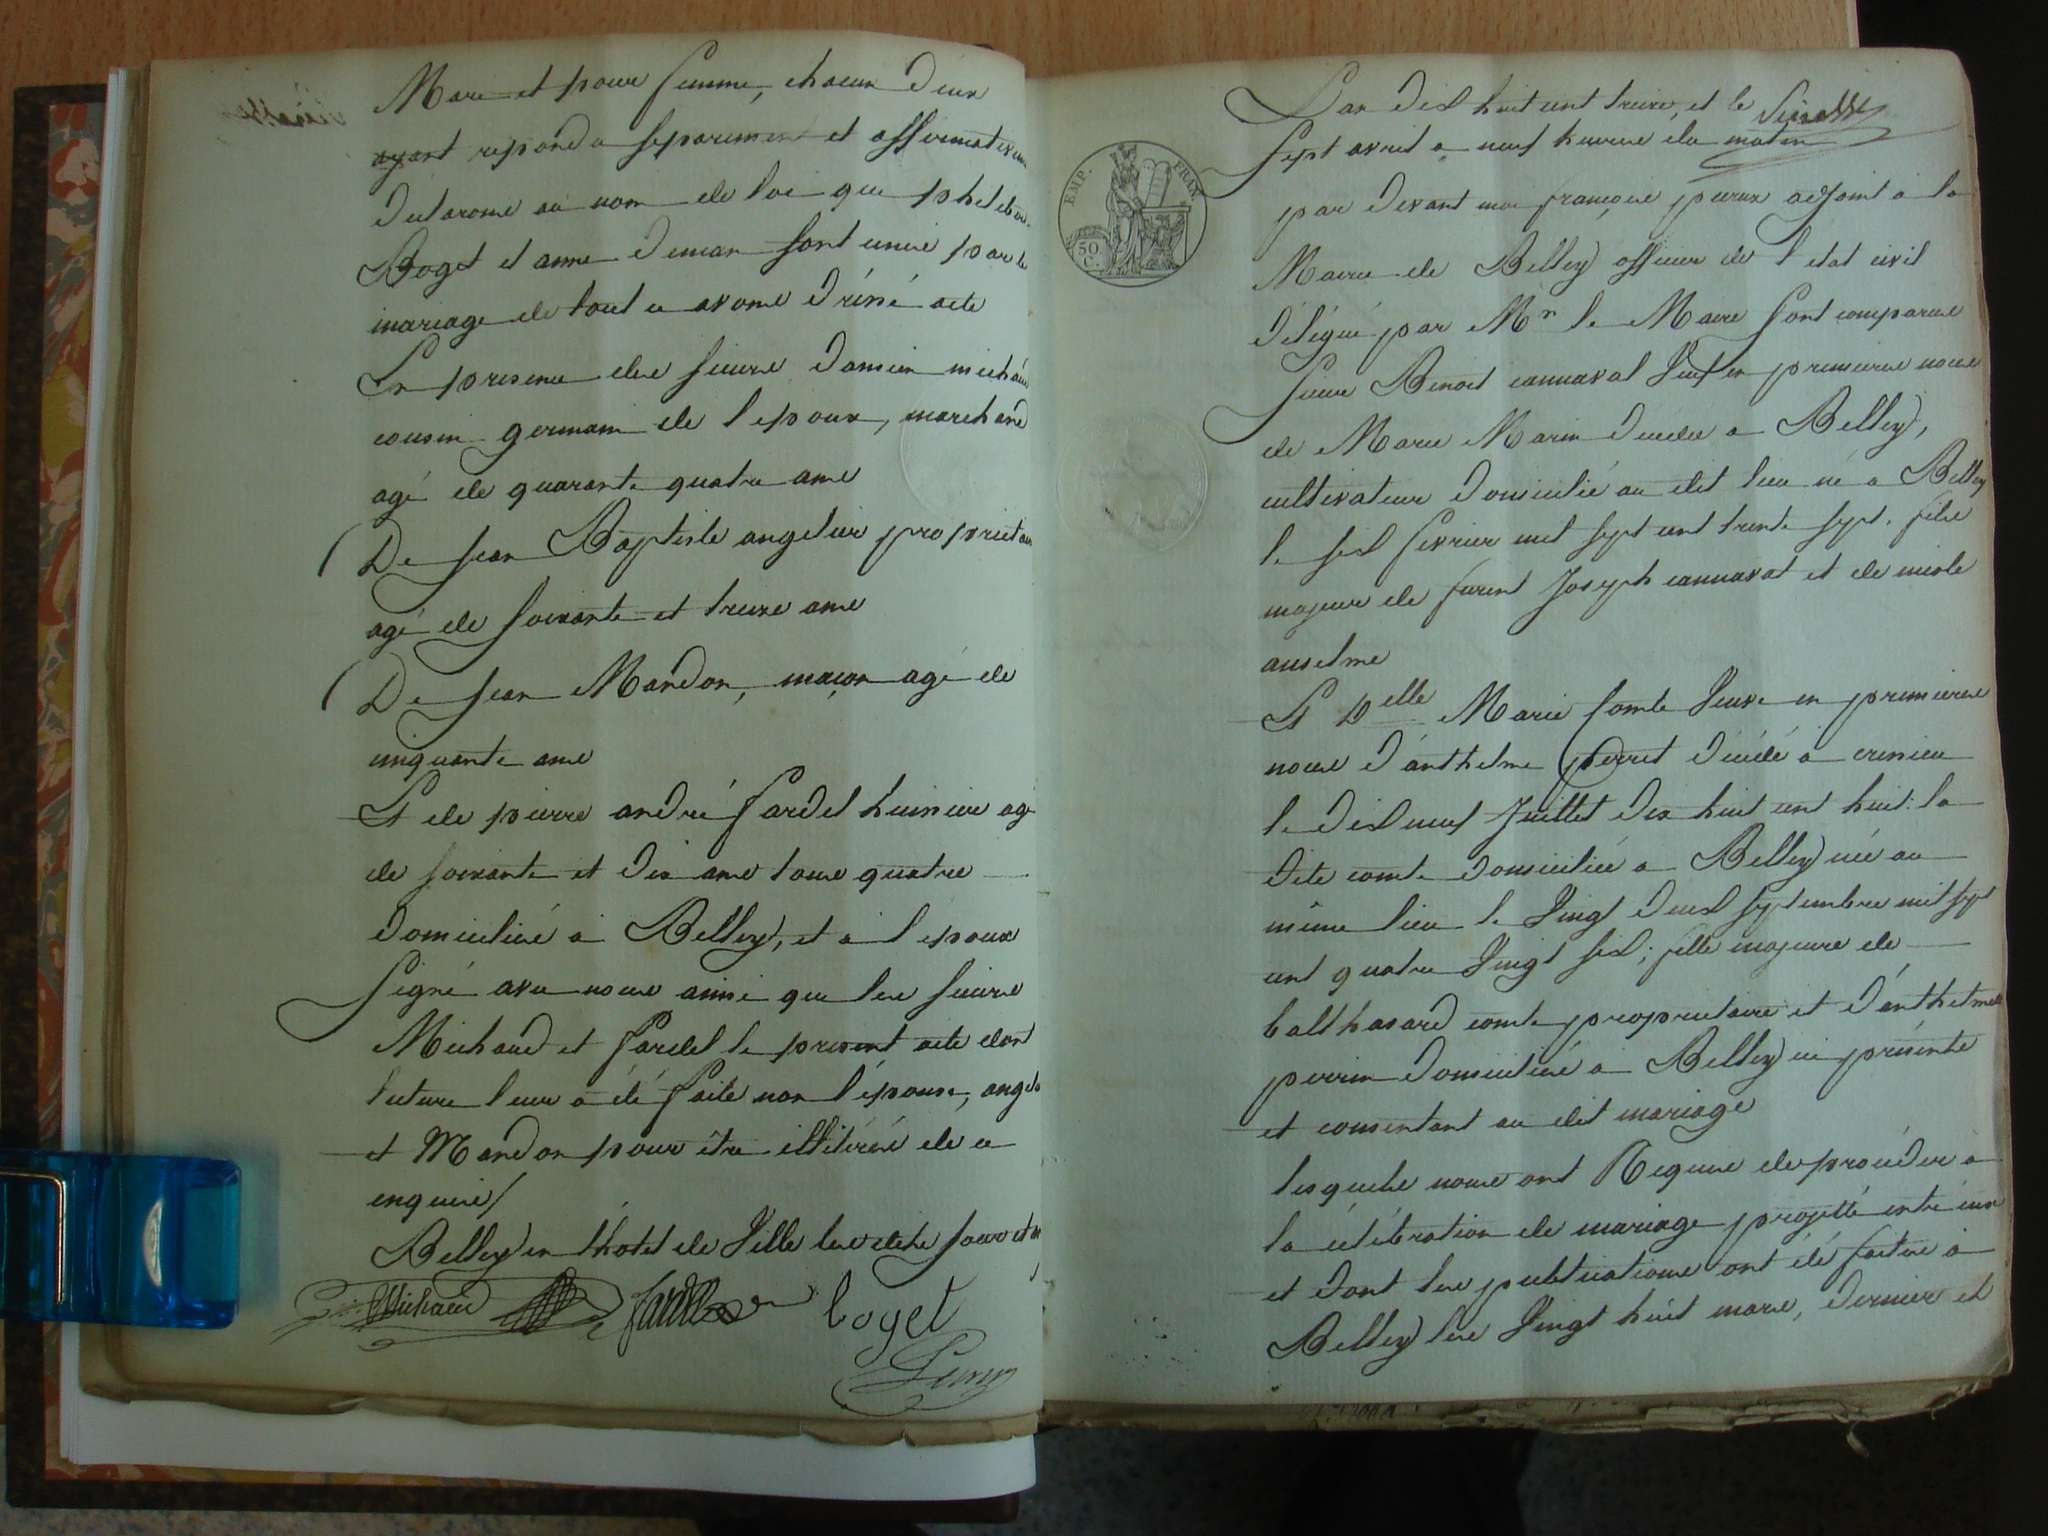 Mari et pour femme, chacun d'eux
ayant repondu séparement et affirmativem
declarons au nom de loi que phileber
Boget et anne duman sont unis par le
mariage de tout ce avons dréssé acte
En presence des sieurs damien michaud
cousin germain de l'epoux, marchand
agé de quarante quatre ans
De jean Baptiste angelier proprietair
agé de soixante et treize ans
De jean Mandon, maçon agé de
cinquante ans
Et de pierre andré fardel huissier agé
de soixante et dix ans tous quatre
domiciliés à Belley, et à l'époux
signé avec nous ainsi que les sieurs
Michaud et fardel le present acte dont
lecture leur a été faite non l'épouse, angel
et Mandon pour être illitérés de ce
enquis /
Belley en l'hotel de Ville les dits jour et
Michaud fardel boget
L'an dix huit cent treize, et le
sept avril a neuf heures du matin
par devant moi françois peroux adjoint à la
Mairie de Belley officier de l'etat civil
délégué par Mr le Maire sont comparus
sieur Benoit cannaval veuf en premieres noces
de Marie Marin decedee a Belley,
cultivateur domicilié au dit lieu né a Belley
le six fevrier mil sept cent trente sept, fils
majeur de furent Joseph cannaval et de nicole
anselme
Et Delle Marie Comte Veuve en premieres
noces d'anthelme perret décédé à
le dix neuf Juillet dix huit cent huit. la
dite comte domiciliée a Belley née au
même lieu le Vingt deux septembre mil sept
cent quatre Vingt six; fille majeure de
balthasard comte proprietaire et d'anthelme
perrin domiciliés à Belley ici présents
et consentant au dit mariage
lesquels nous ont Requis de procéder à
la célébration de mariage projetté entre eux
et dont les publications ont été faites à
Belley les Vingt huit mars, dernier et
EMP. FRAN.
50 C.